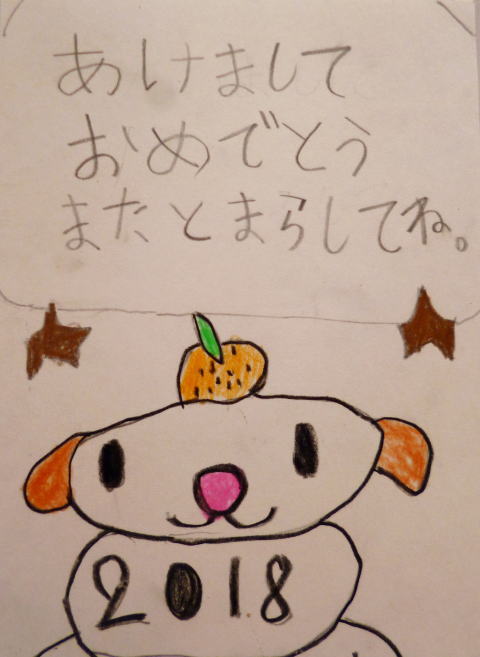 あけまして
おめでとう
またとまらしてね。
2018